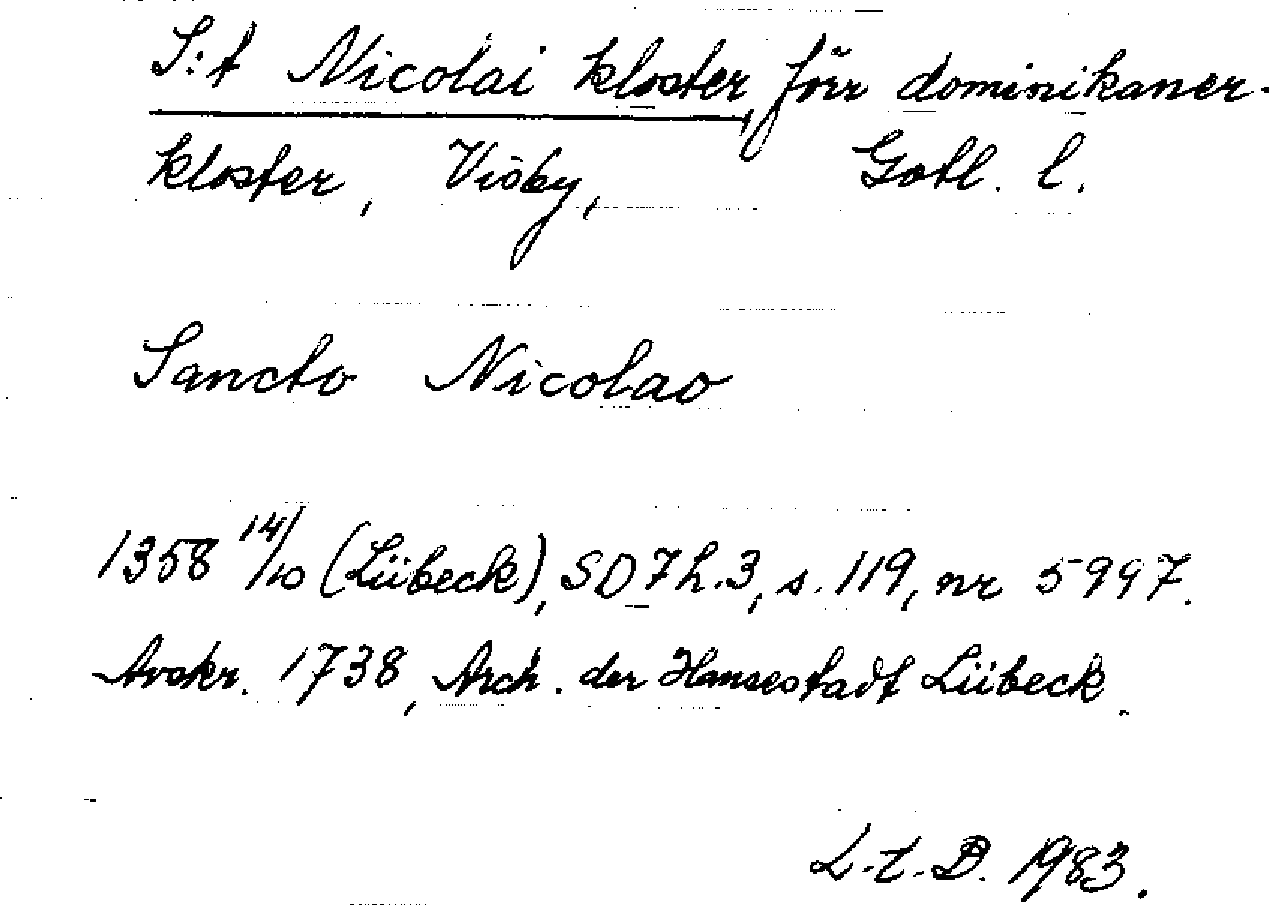 S:t Nicolai kloster, förr dominikaner-
kloster, Visby, Gotl. l.
Sancto Nicolao
1358 14/10 (Lübeck), SD 7 h. 3, s. 119, nr 5997.
Avskr. 1738, Arch. der Hansestadt Lübeck.
L.t.D. 1983.